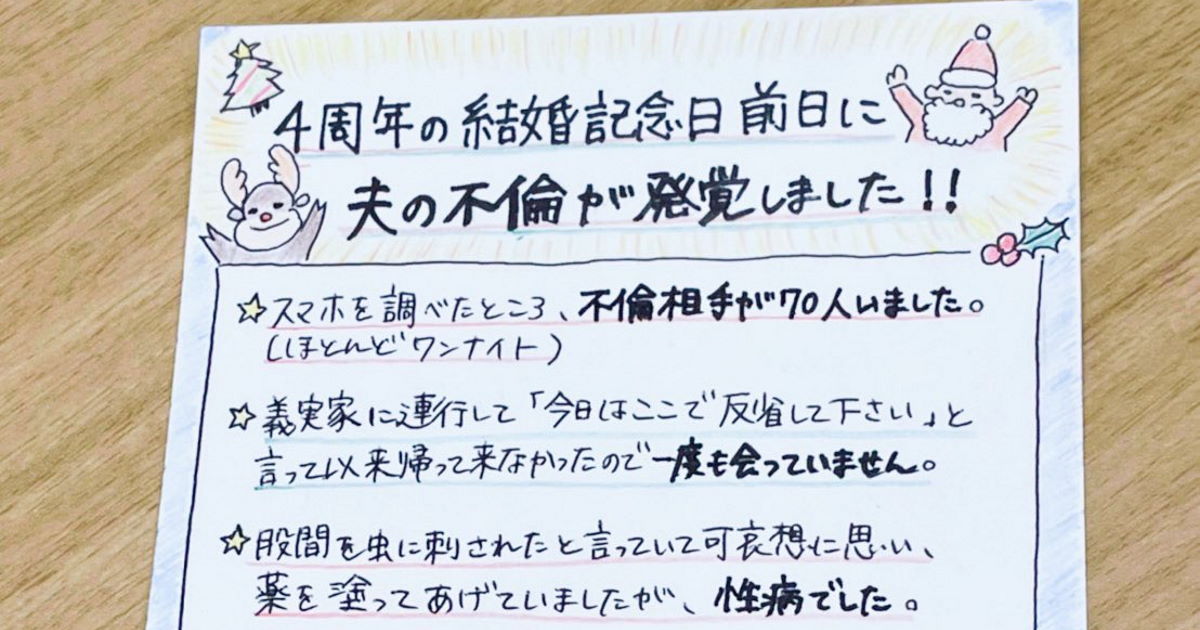 4周年の結婚記念日前日に
夫の不倫が発覚しました!!
☆スマホを調べたところ、不倫相手が70人いました。
(ほとんどワンナイト)
☆義実家に連行して「今日はここで反省して下さい」と
言って以来帰って来なかったので一度も会っていません。
☆股間を虫に刺されたと言っていて可哀想に思い、
薬を塗ってあげていましたが、性病でした。